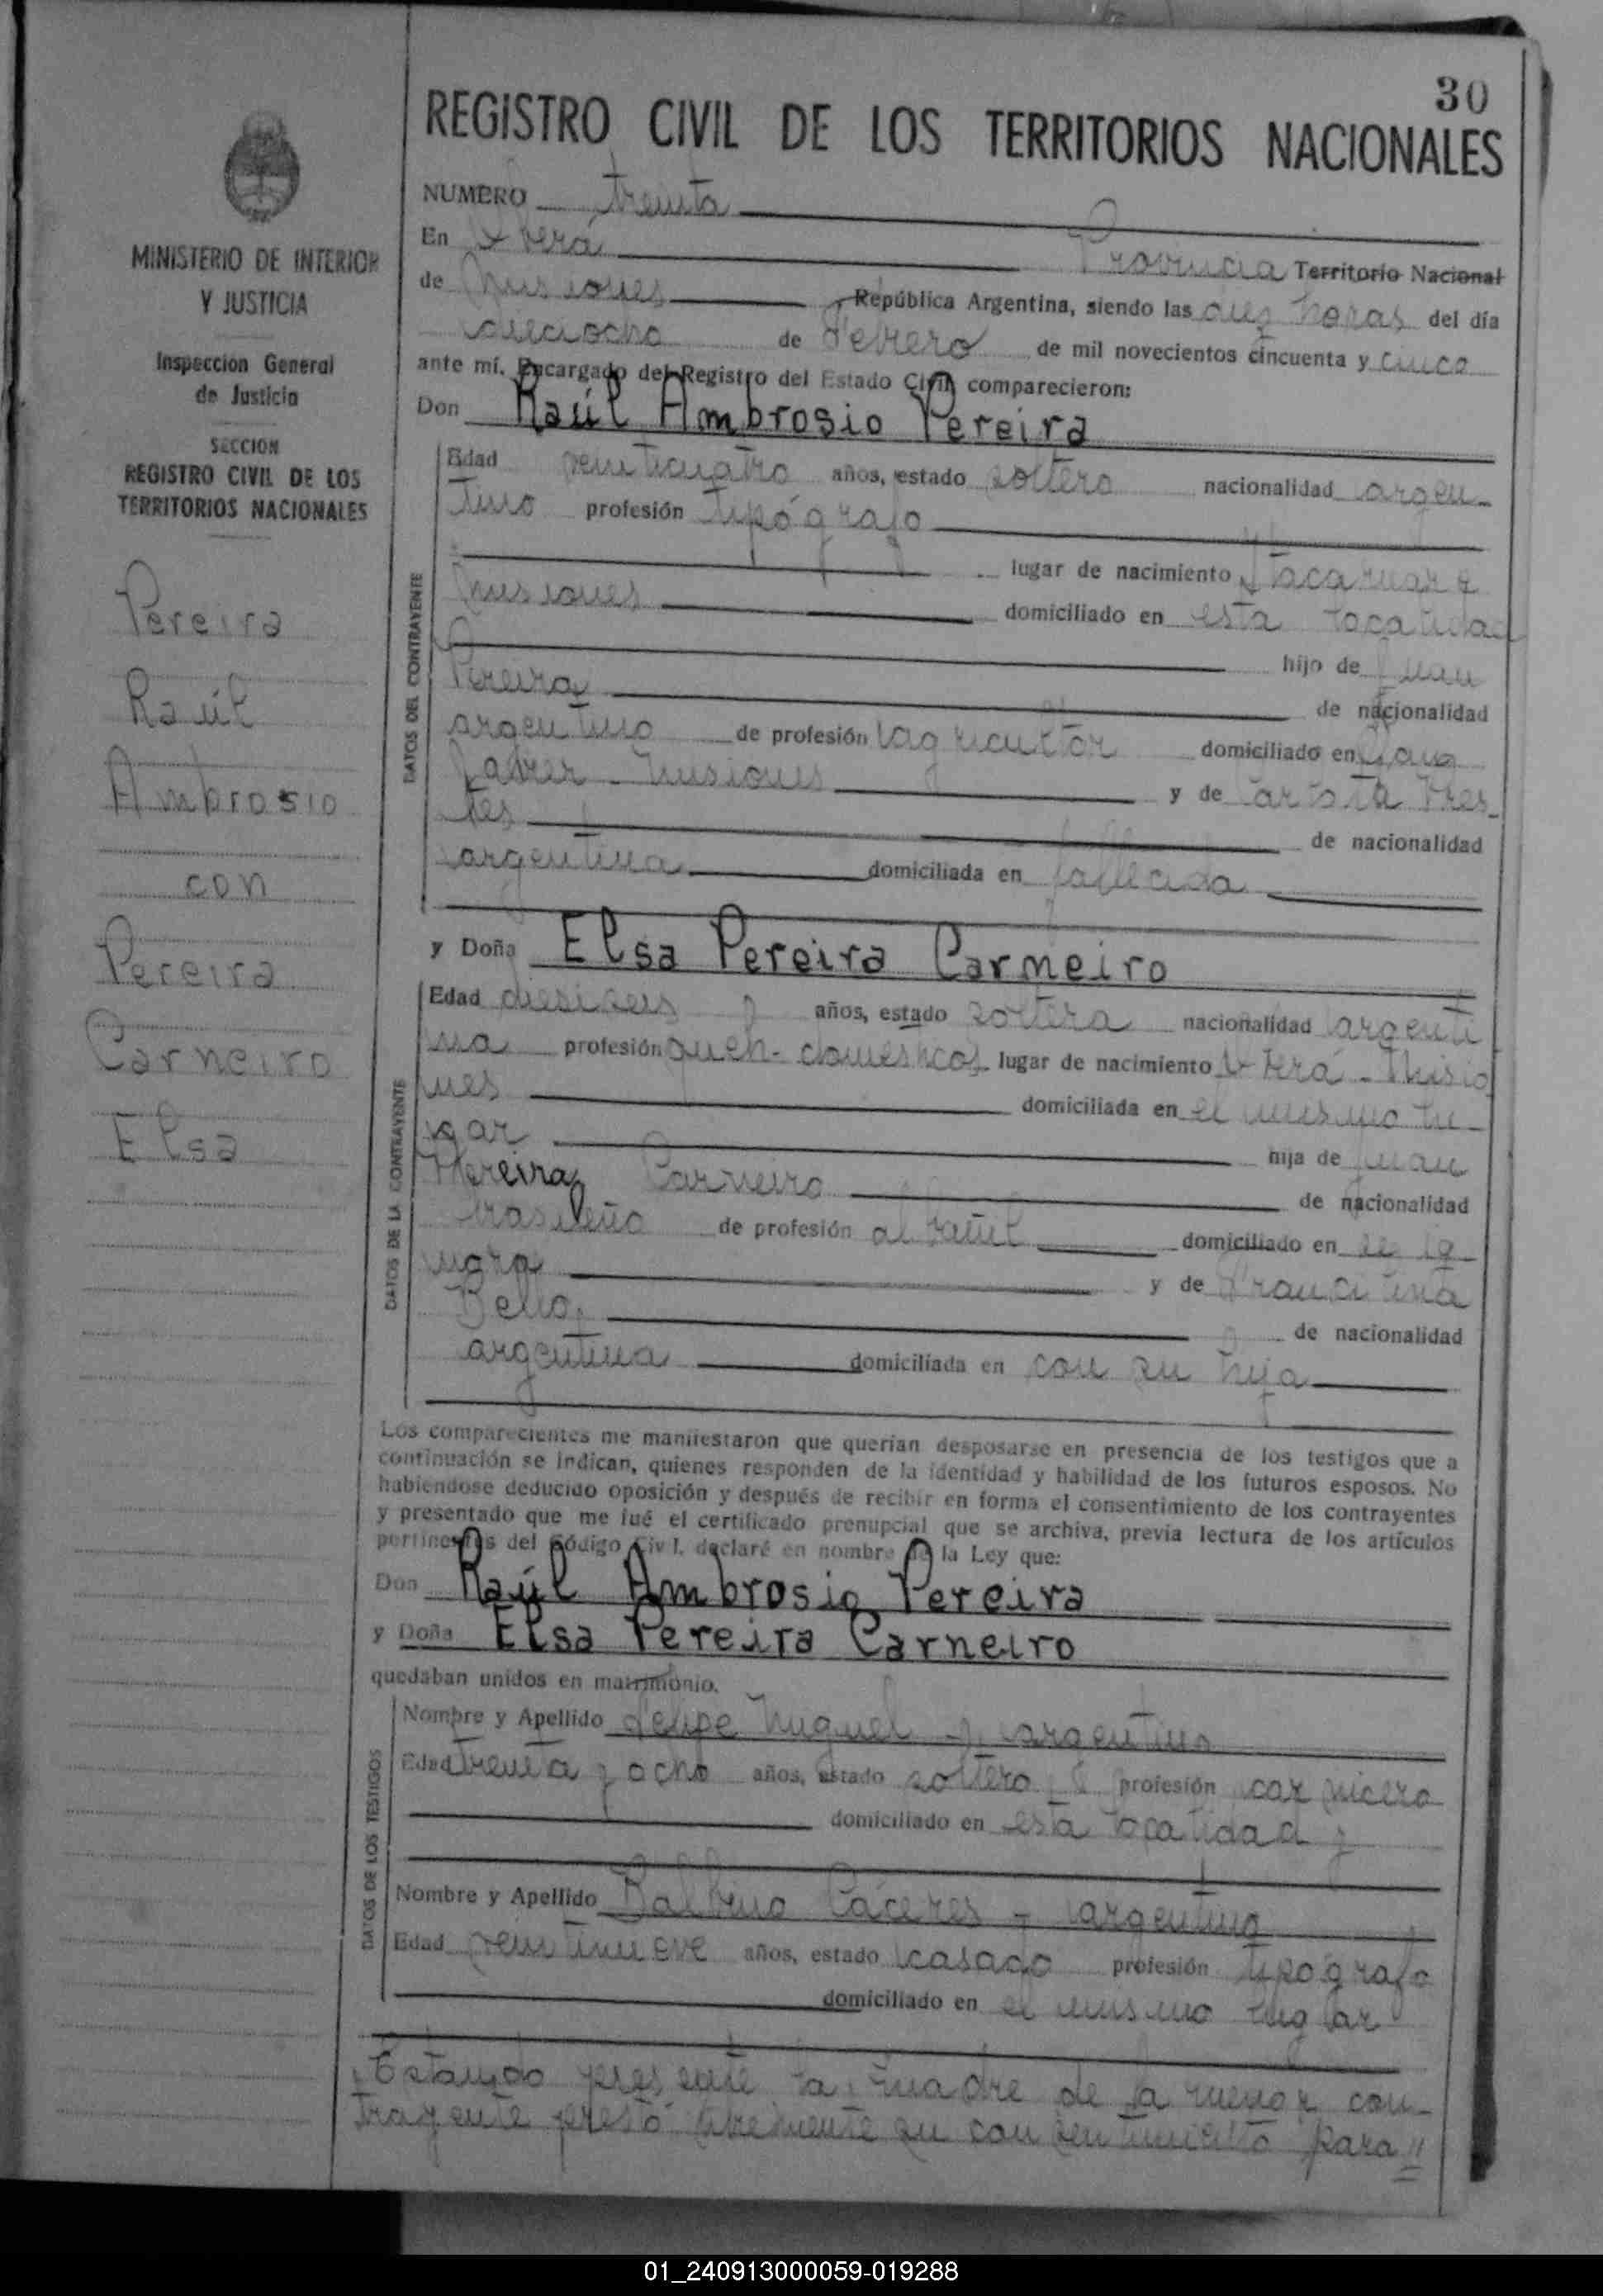 30
REGISTRO CIVIL DE LOS TERRITORIOS NACIONALES
MINISTERIO DE INTERIOR
Y JUSTICIA
Inspección General
de Justicia
SECCION
REGISTRO CIVIL DE LOS
TERRITORIOS NACIONALES
Pereira
Raúl
Ambrosio
con
Pereira
Carneiro
Elsa
NUMERO treinta
En Oberá Provincia Territorio Nacional
de Misiones, República Argentina, siendo las diez horas del día
dieciocho de Febrero de mil novecientos cincuenta y cinco
ante mí, Encargado del Registro del Estado Civil, comparecieron:
Don Raúl Ambrosio Pereira
DATOS DEL CONTRAYENTE
Edad veinticuatro años, estado soltero nacionalidad argen-
tino profesión tipógrafo
lugar de nacimiento Itacaruaré
Misiones domiciliado en esta localidad
hijo de Juan
Pereira de nacionalidad
argentino de profesión agricultor domiciliado en
Javier - Misiones y de Carlota
de nacionalidad
argentina domiciliada en fallecida
y Doña Elsa Pereira Carneiro
DATOS DE LA CONTRAYENTE
Edad diesiseis años, estado soltera nacionalidad argenti
na profesión queh- domésticos lugar de nacimiento Oberá - Misio
nes domiciliada en el mismo lu-
gar hija de Juan
Pereira Carneiro de nacionalidad
brasileño de profesión albañil domiciliado en se ig
nora y de
Bello de nacionalidad
argentina domiciliada en con su hija
Los comparecientes me manifestaron que querían desposarse en presencia de los testigos que a
continuación se indican, quienes responden de la identidad y habilidad de los futuros esposos. No
habiéndose deducido oposición y después de recibir en forma el consentimiento de los contrayentes
y presentado que me fué el certificado prenupcial que se archiva, previa lectura de los artículos
pertinentes del Código Civil, declaré en nombre de la Ley que:
Don Raúl Ambrosio Pereira
y Doña Elsa Pereira Carneiro
quedaban unidos en matrimonio.
DATOS DE LOS TESTIGOS
Nombre y Apellido Felipe Miguel - argentino
Edad treinta y ocho años, estado soltero profesión carnicero
domiciliado en esta localidad y
Nombre y Apellido Balbino Cáceres - argentino
Edad veintinueve años, estado casado profesión tipógrafo
domiciliado en el mismo lugar
Estando presente la madre de la menor con-
trayente prestó libremente su consentimiento para
01_240913000059-019288